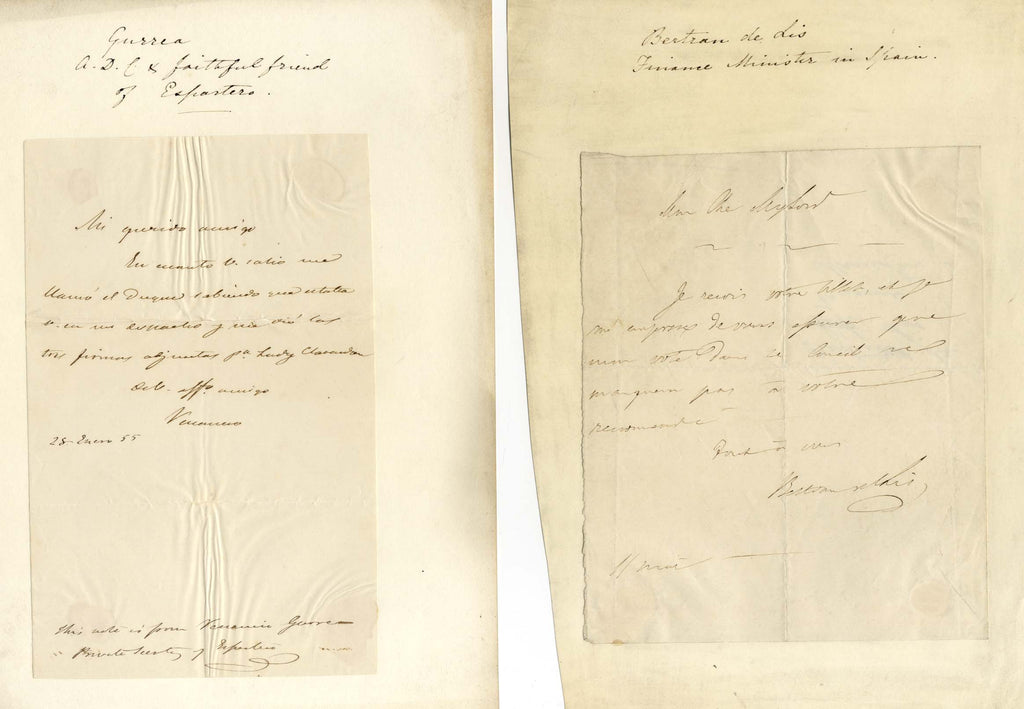 Gurrea
A.D.C & faithful friend
of Espartero.
Mi querido amigo
En cuanto V. salio me
llamó el Duque sabiendo que estaba
V. en mi despacho y me dió las
tres firmas adjuntas pa. Lady Clarendon
De V. affo. amigo
Venancio
28 Enero 55
This note is from Venancio Gurrea
Private Secrety of Espartero
Bertran de Lis
Finance Minister in Spain.
Mon Che Mylord
Je reçois votre billet, et je
m'empresse de vous assurer que
mon vote dans le Conseil ne
manquera pas à votre
recommandé
Tout à vous
Bertran de Lis
11 mai